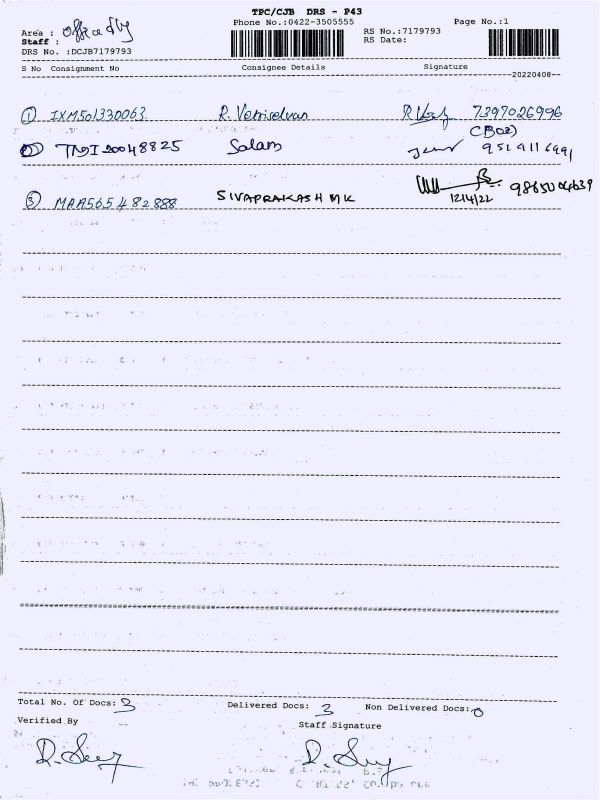 TPC/CJB DRS - P43
Phone No.:0422-3505555 Page No.:1
Area : Office dly
RS No.:7179793
Staff :
RS Date:
DRS No. :DCJB7179793
S No Consignment No Consignee Details Signature
20220408
1 IXM501330063 R. Vetriselvan 7397026996
(CB02)
2 Salam
3 MAA565482888 SIVAPRAKASH MK
12/4/22
Total No. Of Docs: 3 Delivered Docs: 3 Non Delivered Docs: 0
Verified By Staff Signature